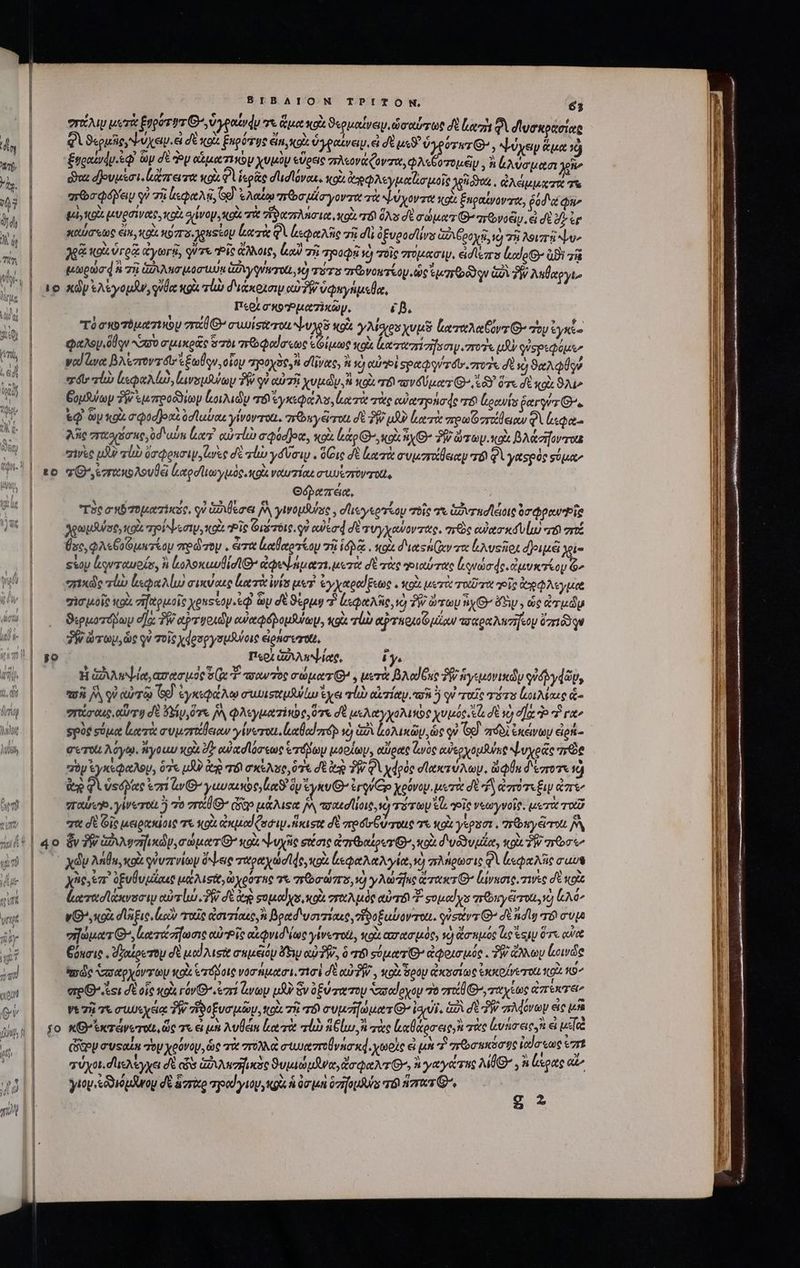 ΒΙΒΛΙΟΝ ΤΡΙΤΟΝ. 63
πάλιν μετὰ ξηρότητος, ὑγραίνειν τε ἅμα καὶ θερμαίνειν. ὡσαύτως δὲ κατὰ τὰς δυσκρασίας
τῆς θερμῆς, ψύχειν. εἰ δὲ καὶ ξηρότης εἴη, καὶ ὑγραίνειν. εἰ δὲ μεθ' ὑγρότητος, ψύχειν ἅμα καὶ
ξηραίνειν. ἐφ' ὧν δὲ τὸν αἱματικὸν χυμὸν εὕροις πλεονάζοντα, φλεβοτομεῖν, ἢ κλύσμασι χρῆ-
σθαι δριμέσι. κἄπειτα καὶ τῆς ἱερᾶς διδόναι. καὶ ἀποφλεγματισμοῖς χρῆσθαι. ἀλείμματά τε
προσφέρειν ἐν τῇ κεφαλῇ, τῷ ἐλαίῳ προσμίσγοντα τὰ ψύχοντα καὶ ξηραίνοντα, ῥόδα φη-
μὶ, καὶ μυρσίνας, καὶ σχίνον, καὶ τὰ παραπλήσια. καὶ τοῦ ὅλου δὲ σώματος προνοεῖν. εἰ δὲ ἐξ ἐγ
καύσεως εἴη, καὶ κόπτοις χρηστέον κατὰ τῆς κεφαλῆς τῇ διὰ ὀξυροδίνου ἐπιβροχῇ, καὶ τῇ λοιπῇ ψυ-
χρᾷ καὶ ὑγρᾷ ἀγωγῇ, ἔν τε τοῖς ἄλλοις, κᾂν τῇ τροφῇ καὶ τοῖς πόμασιν. εἰ δέποτε κάρος ἐπὶ τῇ
μωρώσει ἢ τῇ ἐπιλησμοσύνῃ ἐπιγένηται, καὶ τούτου προνοητέον, ὡς ἔμπροσθεν ἐπὶ τῶν ληθαργι-
10 κῶν ἐλέγομεν, ἔνθα καὶ τὴν διάκρισιν αὐτῶν ὑφηγήμεθα.
Περὶ σκοτωματικῶν. ιβ.
Τὸ σκοτωματικὸν πάθος συνίσταται ψυχροῦ καὶ γλίσχρου χυμοῦ καταλαβόντος τὸν ἐγκέ-
φαλον. ὅθεν ὑπὸ σμικρᾶς ὅτι προφάσεως ἑτοίμως καὶ καταπίπτουσιν. ποτὲ μὲν ἐνστρεφόμε-
νον τινα βλέποντες ἔξωθεν, οἷον τροχὸς, ἢ δῖνας, ἢ καὶ αὐτοὶ στραφέντες. ποτὲ δὲ καὶ θαλφθέν
τες τὴν κεφαλὴν, κινουμένων τῶν ἐν αὐτῇ χυμῶν, ἢ καὶ τοῦ πνεύματος. ἔσθ' ὅτε δὲ καὶ θλι-
βομένων τῶν ἐμπροσθίων κοιλιῶν τοῦ ἐγκεφάλου, κατὰ τὰς ἀνατρήσεις τοῦ κρανίου ῥαγέντος.
ἐφ' ὧν καὶ σφοδραὶ ὀδύναι γίνονται. προηγεῖται δὲ τῶν μὲν κατὰ πρωτοπάθειαν τῆς κεφα-
λῆς πασχούσης, ὀδύνη κατ' αὐτὴν σφόδρα, καὶ κάρος, καὶ ἦχος τῶν ὤτων. καὶ βλάπτονται
τινὲς μὲν τὴν ὄσφρησιν, τινὲς δὲ τὴν γεῦσιν. τοῖς δὲ κατὰ συμπάθειαν τοῦ τῆς γαστρὸς στόμα-
20 τος, ἐπακολουθεῖ καρδιωγμὸς. καὶ ναυτίαι συνέπονται.
Θεραπεία.
Τοὺς σκοτωματικοὺς, ἐν ἐπιθέσει μὲν γινομένους, διεγερτέον τοῖς τε ἐπιτηδείοις ὀσφραντοῖς
χρωμένους, καὶ τρίψεσιν, καὶ τοῖς τοιούτοις. ἐν ἀνέσει δὲ τυγχάνοντας. πρὸς ἀνασκευὴν τοῦ πά
θους, φλεβοτομητέον πρῶτον. εἶτα καθαρτέον τῇ ἱερᾷ. καὶ διαστήσαντα κλυστῆρι δριμεῖ χρη-
στέον κενταυρίῳ, ἢ κολοκυνθίδος ἀφεψήματι. μετὰ δὲ τὰς τοιαύτας κενώσεις. ἀμυκτέον το-
πικῶς τὴν κεφαλὴν σικύαις κατὰ ἰνίον μετ' ἐγχαράξεως. καὶ μετὰ ταῦτα τοῖς ἀποφλεγμα
τισμοῖς καὶ πταρμοῖς χρηστέον. ἐφ' ὧν δὲ θέρμη τῆς κεφαλῆς, καὶ τῶν ὤτων ἦχος ἐστὶν, ὡς ἀτμῶν
θερμοτέρων διὰ τῶν ἀρτηριῶν ἀναφερομένων, καὶ τὴν ἀρτηριοτομίαν παραληπτέον ὄπισθεν
τῶν ὤτων, ὡς ἐν τοῖς χειρουργουμένοις εἰρήσεται.
30 Περὶ ἐπιληψίας. ιγ.
Ἡ ἐπιληψία, σπασμός ἐστι τοῦ παντὸς σώματος, μετὰ βλάβης τῶν ἡγεμονικῶν ἐνεργειῶν,
ποτὲ μὲν ἐν αὐτῷ τῷ ἐγκεφάλῳ συνισταμένην ἔχει τὴν αἰτίαν. ποτὲ δὲ ἐν ταῖς τούτου κοιλίαις ἁ-
πάσαις. αὕτη δέ ἐστιν, ὅτε μὲν φλεγματικὸς, ὅτε δὲ μελαγχολικὸς χυμός. ἔτι δὲ καὶ διὰ τὸ τῆς γα-
στρὸς στόμα κατὰ συμπάθειαν γίνεται. καθάπερ καὶ ἐπὶ κολικῶν, ὡς ἐν τῷ περὶ ἐκείνων εἰρή-
σεται λόγῳ. ἤγουν καὶ ἐξ ἀναδόσεως ἑτέρων μορίων, αὔρας τινὸς ἀνερχομένης ψυχρᾶς πρὸς
τὸν ἐγκέφαλον, ὅτε μὲν ἀπὸ τοῦ σκέλους, ὅτε δὲ ἀπὸ τῶν τῆς χειρὸς δακτύλων. ὤφθη δέποτε καὶ
ἀπὸ τῆς ὑστέρας ἐπί τινος γυναικὸς, καθ' ὃν ἔγκυος ἐτύγχανε χρόνον. μετὰ δὲ τὴν ἀπότεξιν ἀπε-
παύσατο. γίνεται δὲ τὸ πάθος τοῦτο μάλιστα μὲν παιδίοις, καὶ τούτων ἔτι τοῖς νεωγνοῖς. μετὰ ταῦ
τα δὲ τοῖς μειρακίοις τε καὶ ἀκμάζουσιν. ἥκιστα δὲ πρεσβύταις τε καὶ γέρουσι. προηγεῖται μὲν
40 ἓν τῶν ἐπιληπτικῶν, σώματος καὶ ψυχῆς στάσις ἀπροαίρετος, καὶ δυσθυμία, καὶ τῶν προσε-
χῶν λήθη, καὶ ἐνυπνίων ὄψεις ταραχώδεις, καὶ κεφαλαλγία, καὶ πλήρωσις τῆς κεφαλῆς συνε
χὴς, ἐπ' ὀξυθυμίαις μάλιστα, ὠχρότης τε προσώπου, καὶ γλώττης ἄτακτος κίνησις. τινὲς δὲ καὶ
καταδάκνουσιν αὐτήν. τῶν δὲ ἀπὸ στομάχου, καὶ παλμὸς αὐτοῦ τοῦ στομάχου προηγεῖται, καὶ κλό-
νος, καὶ δῆξις. κᾂν ταῖς ἀσιτίαις, ἢ βραδυσιτίαις, παροξύνονται. ἐνστάντος δὲ ἤδη τοῦ συμ
πτώματος, κατάπτωσις αὐτοῖς αἰφνιδίως γίνεται, καὶ σπασμὸς, καὶ ἄσημός τις ἐστιν ὅτε ἀνα
βόησις. ἐξαίρετον δὲ μάλιστα σημεῖόν ἐστιν αὐτῶν, ὁ τοῦ στόματος ἀφρισμὸς. τῶν ἄλλων κοινῶς
πως ὑπαρχόντων καὶ ἑτέροις νοσήμασι. τισὶ δὲ αὐτῶν, καὶ οὖρον ἀκουσίως ἐκκρίνεται καὶ κό-
προς. ἔστι δὲ οἷς καὶ γόνος. ἐπί τινων μὲν ἓν ὀξύτατον ὑπάρχον τὸ πάθος, ταχέως ἀπέκτει-
νε τῇ τε συνεχείᾳ τῶν παροξυσμῶν, καὶ τῇ τοῦ συμπτώματος ἰσχύϊ. ἐπὶ δὲ τῶν πλειόνων εἰς μῆ
50 κος ἐκτείνεται, ὥς τε εἰ μὴ λυθείη κατὰ τὴν ἥβην, ἢ τὰς καθάρσεις, ἢ τὰς κυήσεις, ἢ εἰ μεῖζον
συσταίη τὸν χρόνον, ὡς τὰ πολλὰ συναποθνήσκει. χωρὶς εἰ μὴ τῆς προσηκούσης ἰάσεως ἐπι
τύχοι. διελέγχει δὲ τοὺς ἐπιληπτικοὺς θυμιώμενα, ἄσφαλτος, ἢ γαγάτης λίθος, ἢ κέρας αἴ-
γιον. ἐσθιόμενον δὲ ἧπαρ τράγιον, καὶ ἡ ὀσμὴ ὀπτωμένου τοῦ ἥπατος.
g 2